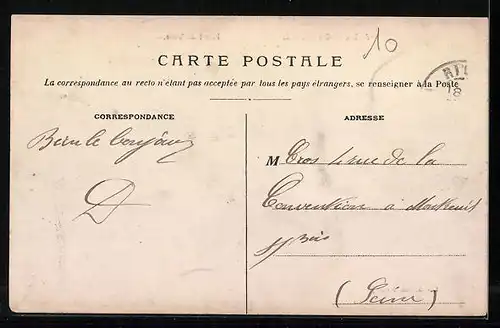 10
CARTE POSTALE
La correspondance au recto n'étant pas acceptée par tous les pays étrangers, se renseigner à la Poste
CORRESPONDANCE
ADRESSE
Bien le bonjour
D
M Cros 4 rue de la
Convention à Montreuil
s/ Bois
(Seine)